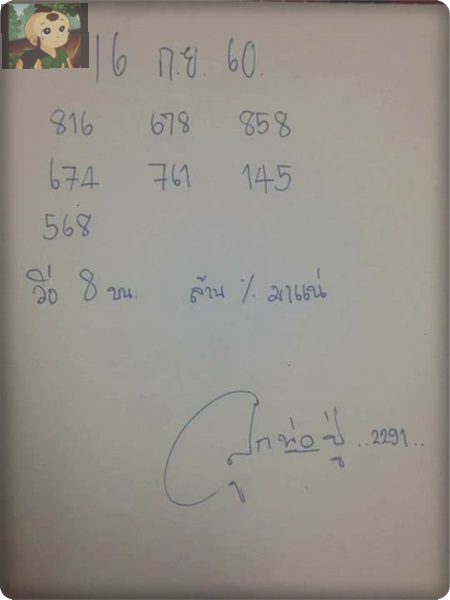 16 ก.ย. 60.
816 678 858
674 761 145
568
วิ่ง 8 บน. ล้าน % มาแน่
ลูกพ่อปู่ ..2291..